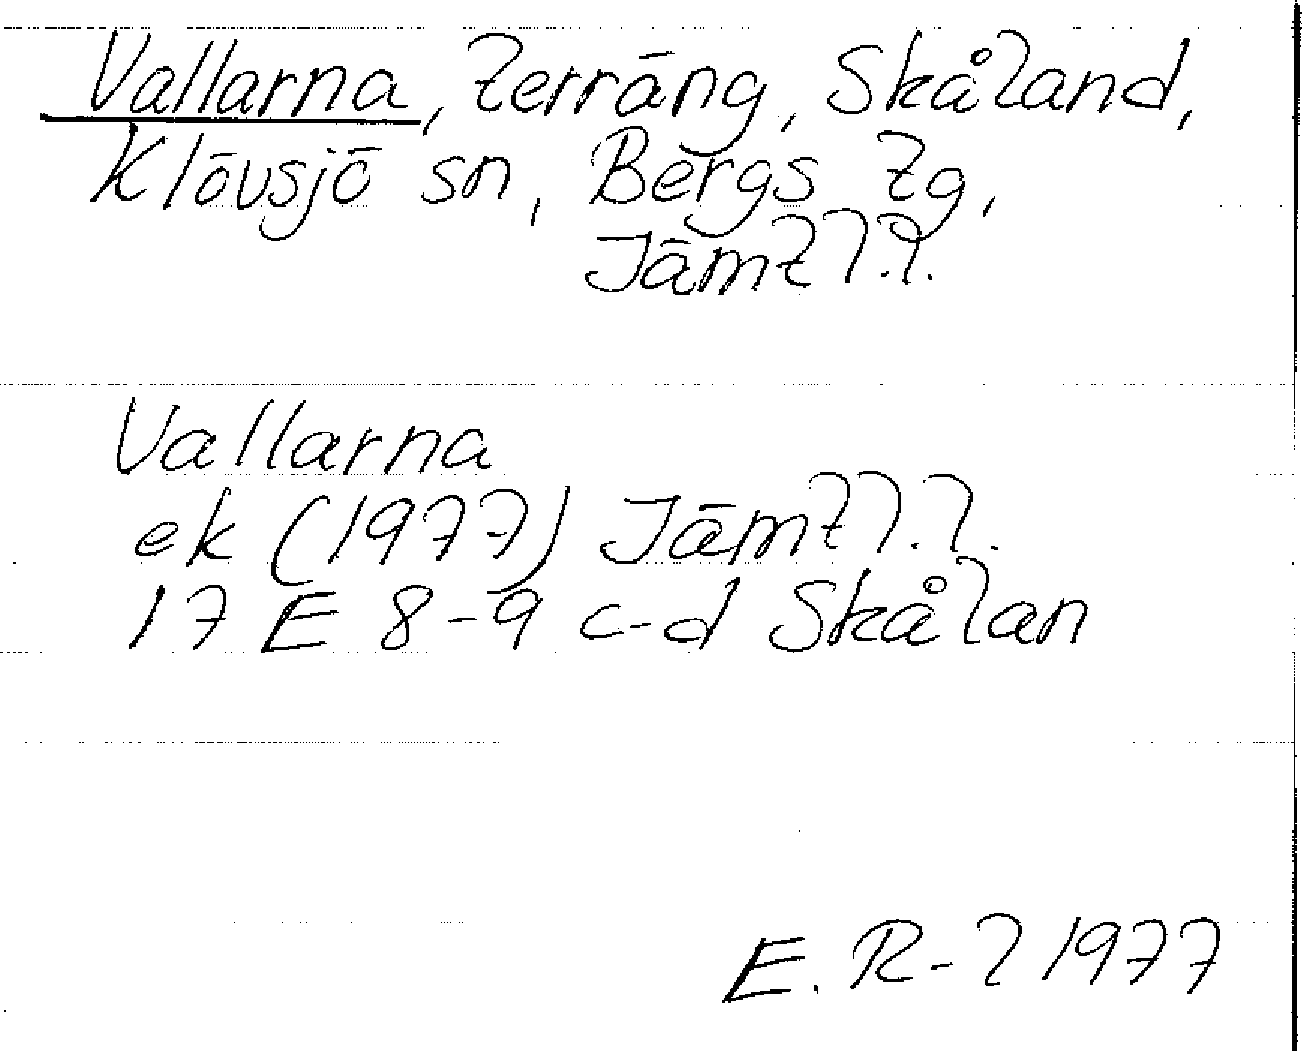 Vallarna, terräng, Skåland,
Klövsjö sn, Bergs tg,
Jämtl.l.
Vallarna
ek (1977) Jämtl.l.
17 E 8-9 c-d Skålan
E. R-l 1977